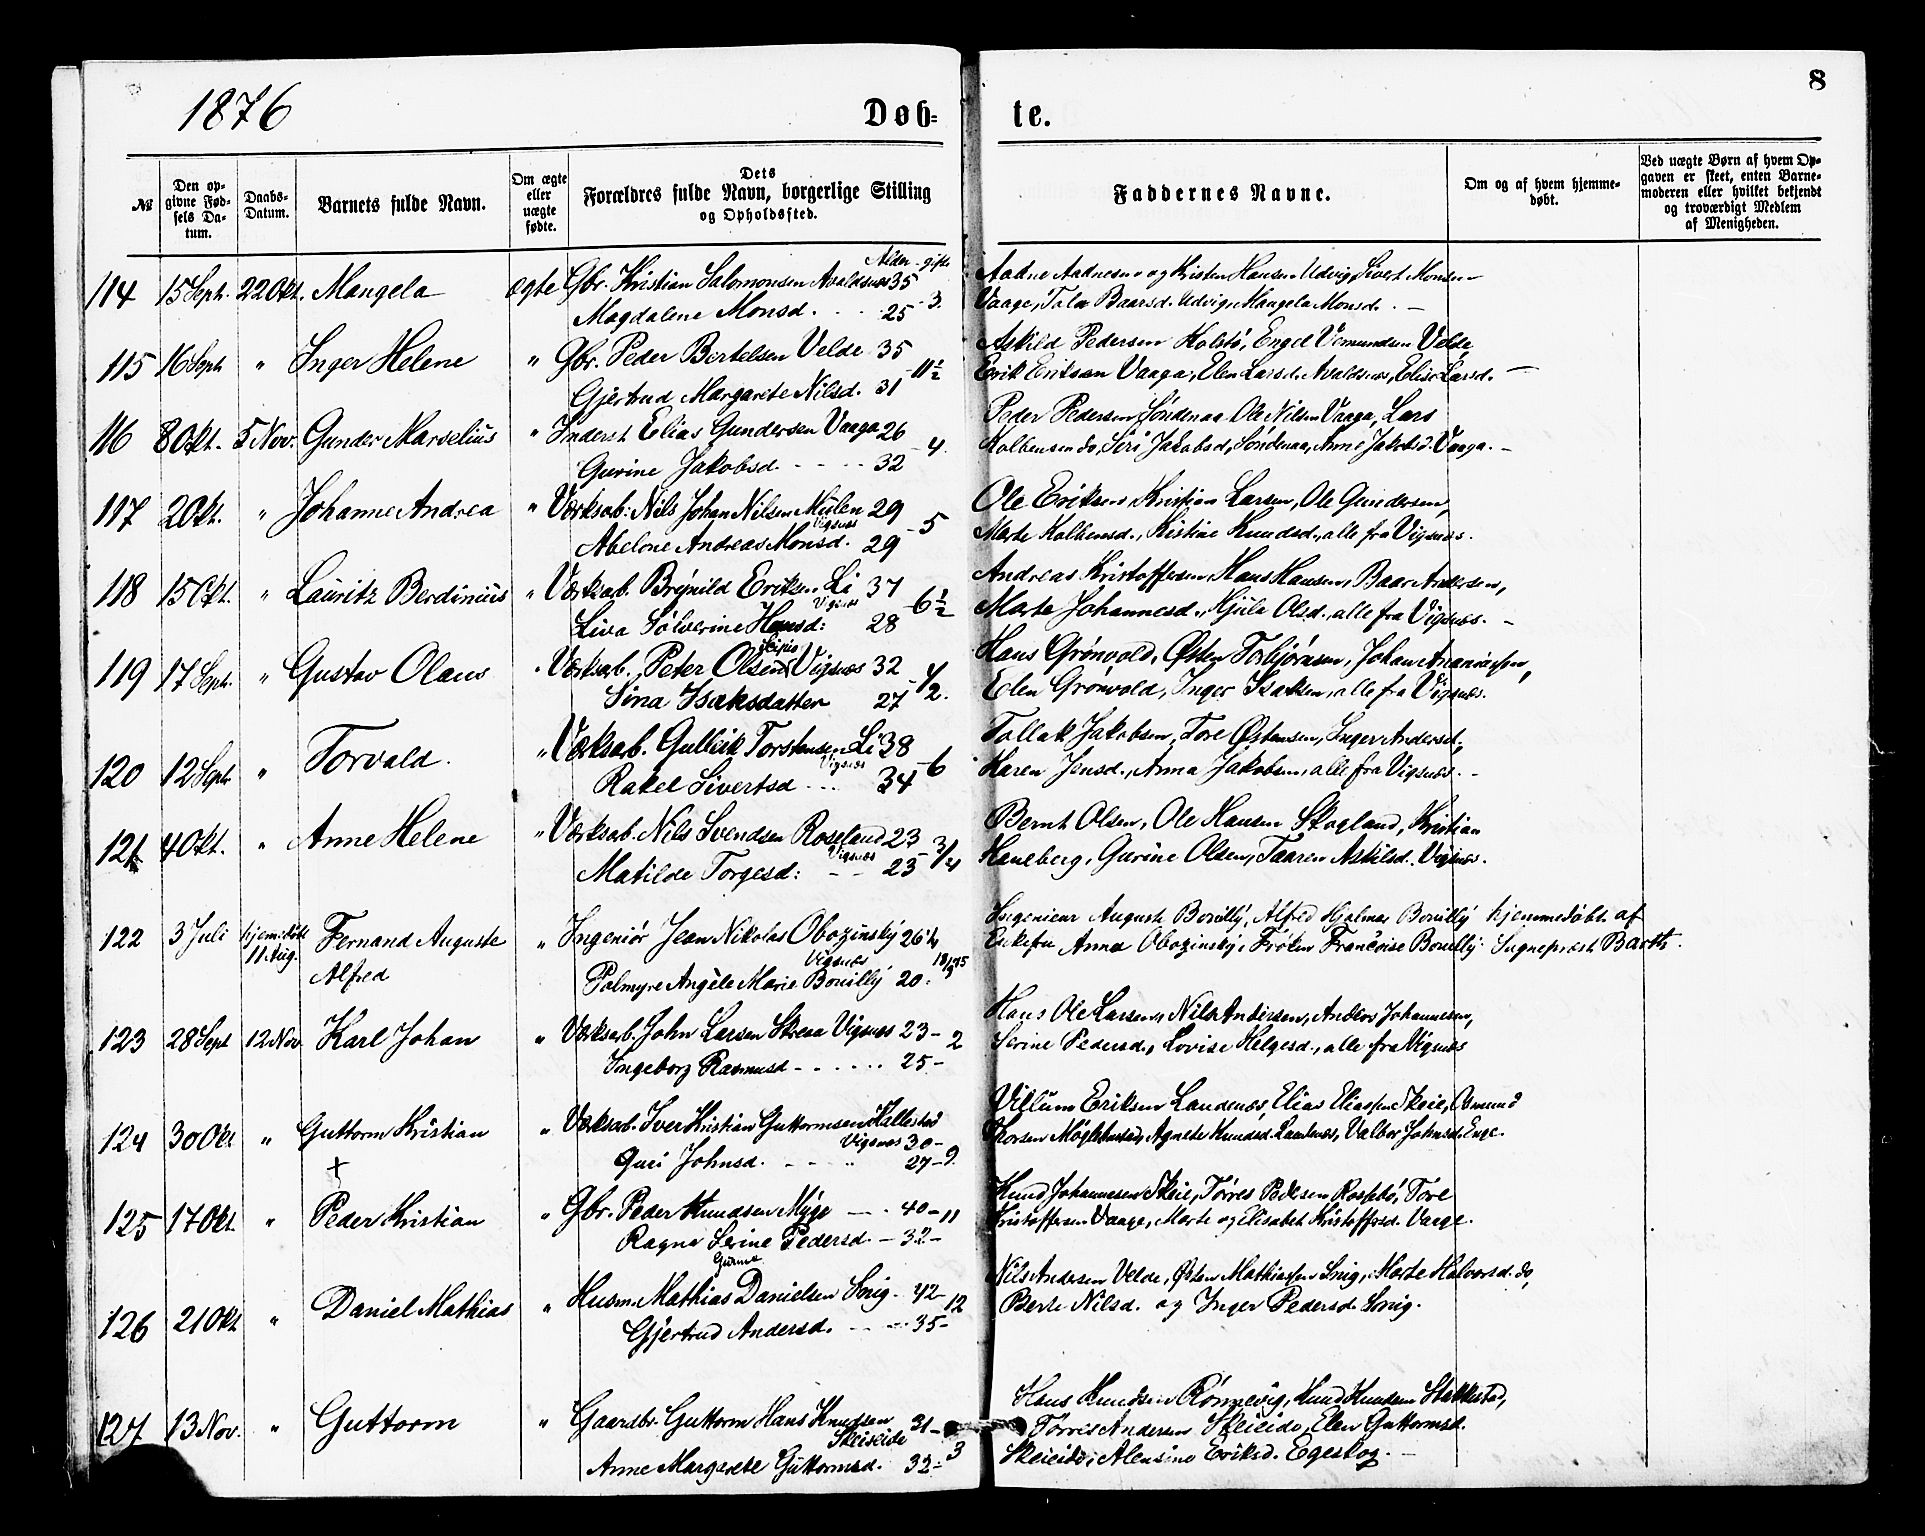 1876
Døb-
te.
8
№
Den op-
givne Fød-
sels Da-
tum.
Daabs-
Datum.
Barnets fulde Navn.
Om ægte
eller
uægte
fødte.
Dets
Forældres fulde Navn, borgerlige Stilling
og Opholdssted.
Faddernes Navne.
Om og af hvem hjemme-
døbt.
Ved uægte Børn af hvem Op-
gaven er skeet, enten Barne-
moderen eller hvilket bekjendt
og troværdigt Medlem
af Menigheden.
Alder - gifte
114 15 Sept. 22 Okt. Mangela ægte Gbr. Kristian Salomonsen Avaldsnæs 35
Magdalene Monsd. 25 - 3.
Aadne Aadnesen og Kristen Hansen Udvig, Sivert Monsen
Vaage, Tala Baarsd. Udvig, Mangela Monsd. -
115 16 Sept " Inger Helene " Gbr. Peder Bertelsen Velde 35
Gjertrud Margarete Nilsd. 31 - 11½
Askild Pedersen Kolstø, Engel Vemundsen Velde
Erik Eriksen Vaaga, Elen Larsd. Avaldsnæs, Elise Larsd. -
116 8 Okt. 5 Nov. Gunder Marselius " Inderst Elias Gundersen Vaaga 26
Gurine Jakobsd. 32 - 4.
Peder Pedersen Søndenaa Ole Nilsen Vaaga, Lars
Kolbensen do, Siri Jakobsd. Søndenaa, Anne Jakobsd. Vaaga. -
117 2 Okt. " Johanne Andrea " Værksab: Nils Johan Nilsen Mülen 29
Vigsnæs
Abelone Andreas Monsd. 29 - 5
Ole Eriksen Kristian Larsen, Ole Gundersen,
Marte Kolbensd., Kistine Knudsd., alle fra Vigsnæs.
118 15 Okt. " Lauritz Berdinius " Værksab. Brynild Eriksen Li 37
Vigsnæs
Liva Sølverine Hansd: 28 - 6½
Andreas Kristoffersen, Hans Hansen, Baar Andersen,
Marta Johannesd., Kjula Olsd., alle fra Vigsnæs. -
119 17 Sept. " Gustav Olaus " Værksab. Peter Olsen Vigsnæs 32
Sina Isaksdatter 27 - ½.
Hans Grønvold, Østen Torbjørnsen, Johan Ananiassen,
Elen Grønvold, Inger Isaksen, alle fra Vigsnæs.
120 12 Sept " Torvald. " Værksab. Gullik Torstensen Li 38
Vigsnæs
Rakel Sivertsd 34 - 6
Tollak Jakobsen, Tore Østensen, Inger Andersd.,
Karen Jensd., Anna Jakobsen, alle fra Vigsnæs. -
121 4 Okt. " Anne Helene " Værksab. Nils Svendsen Roseland 23
Vigsnæs
Matilde Torgesd: 23 - ¾
Bernt Olsen, Ole Hansen Skogland, Kristian
Haneberg, Gurine Olsen, Taaren Askilsd. Vigsnæs.
122 3 Juli hjemdøbt
11 Aug. Fernand Auguste
Alfred " Ingeniør Jean Nikolas Obozinský 26½
Vigsnæs
Palmyre Angèle Marie Bouillý 20.
Ingenieur August Bouillý, Alfred Hjalmar Bouillý
Enkefru Anna Obozinský, Frøken Francoise Bouillý.
hjemmedøbt af
Sognepræst Barth.
123 28 Sept 12 Nov Karl Johan " Værksarb. John Larsen Skreaa Vigsnæs 23 -
Ingeborg Rasmusd 25 - 2
Hans Ole Larsen, Nils Andersen, Andreas Johannesen,
Serine Pedersd., Lovise Helgesd., alle fra Vigsnæs
124 30 Okt " Guttorm Kristian " Værksarb. Iver Kristian Guttormsen Hallestad
+
Vigsnæs 30 -
Guri Johnsd. 27 - 9.
Villum Eriksen Landenæs, Elias Eliassen Skeie, Osmund
Thorsen Møglebustad, Agnete Knudsd. Landenæs, Valbor Johnsd. Enge.
125 17 Okt. " Peder Kristian " Gbr. Peder Knudsen Myge 40 - 11
Ragna Serine Pedersd. - 32 -
Gurine
Knud Johannesen Skeie, Tørres Pedersen Rossebø, Tore
Kristoffersen Vaage, Marte og Elisabet Kristoffersd. Vaage.
126 21 Okt " Daniel Mathias " Husm. Mathias Danielsen Snig. 42 -
Gjertrud Andersd. 35 - 12
Nils Andersen Velde, Østen Mathiassen Snig, Marte Halvorsd. do,
Berte Nilsd. og Inger Pedersd. Snig.
127 13 Nov. " Guttorm " Gaardbr. Guttorm Hans Knudsen
Skeiseide 31 -
Anne Margrete Guttormsd. 32 - 3
Hans Knudsen Rønnevig, Knud Knudsen Stakkestad,
Tørris Andersen Skeieide, Elen Guttormsd.
Skeieide, Alensine Eriksd. Egeskog. -